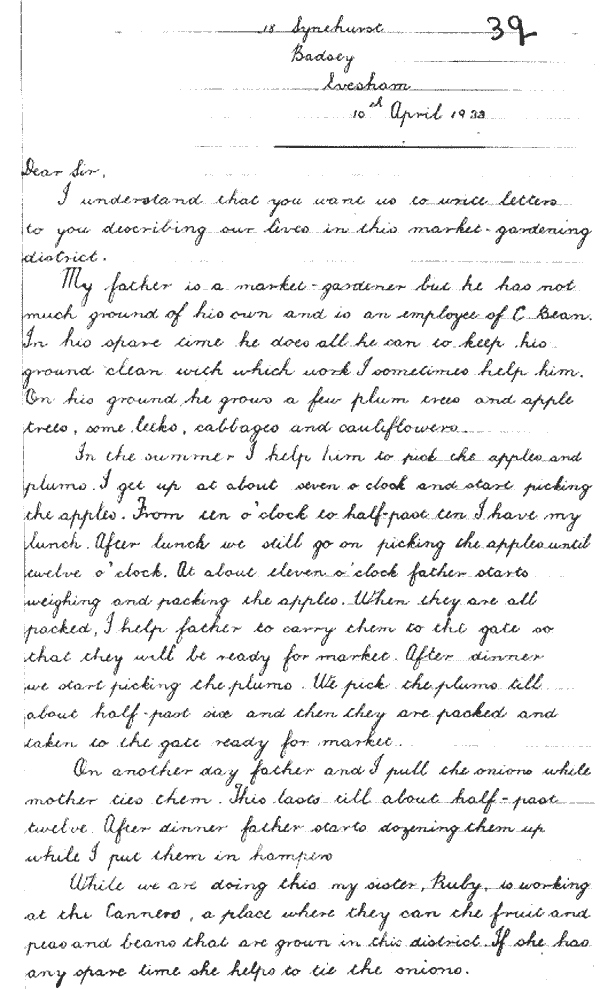 18 Synehurst 39
Badsey
Evesham
10th April 1933
Dear Sir,
I understand that you want us to write letters
to you describing our lives in this market-gardening
district.
My father is a market-gardener but he has not
much ground of his own and is an employee of C Bean.
In his spare time he does all he can to keep his
ground clean with which work I sometimes help him.
On his ground he grows a few plum trees and apple
trees, some leeks, cabbages and cauliflowers.
In the summer I help him to pick the apples and
plums. I get up at about seven o'clock and start picking
the apples. From ten o'clock to half-past ten I have my
lunch. After lunch we still go on picking the apples until
twelve o'clock. At about eleven o'clock father starts
weighing and packing the apples. When they are all
packed, I help father to carry them to the gate so
that they will be ready for market. After dinner
we start picking the plums. We pick the plums till
about half-past six and then they are packed and
taken to the gate ready for market.
On another day father and I pull the onions while
mother ties them. This lasts till about half-past
twelve. After dinner father starts dozening them up
while I put them in hampers
While we are doing this my sister, Ruby, is working
at the Canners, a place where they can the fruit and
peas and beans that are grown in this district. If she has
any spare time she helps to tie the onions.